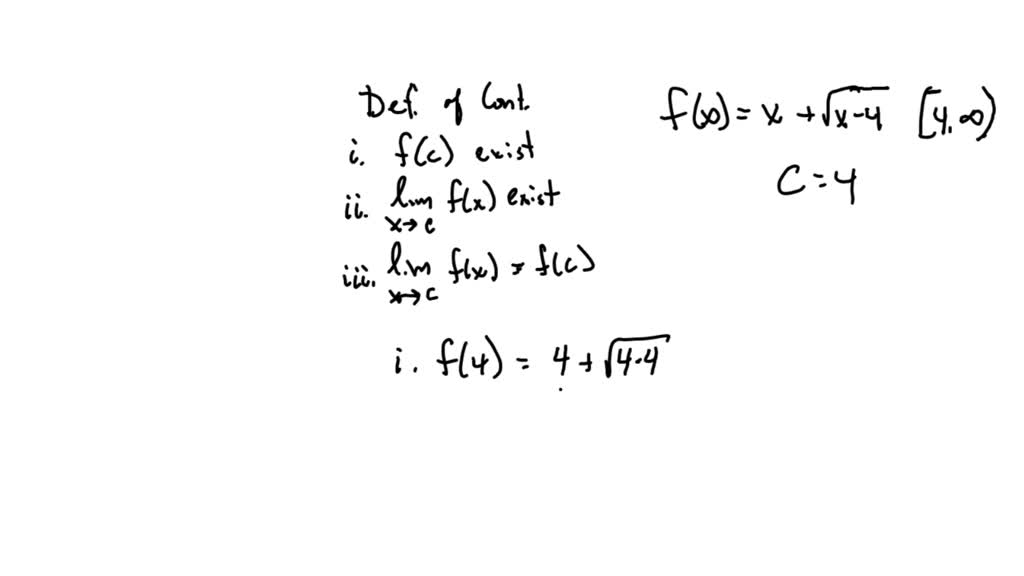 Def. of Cont.
i. f(c) exist
ii. lim f(x) exist
x→c
iii. lim f(x) = f(c)
x→c
f(x) = x + √x-4 [4, ∞)
C = 4
i. f(4) = 4 + √4-4